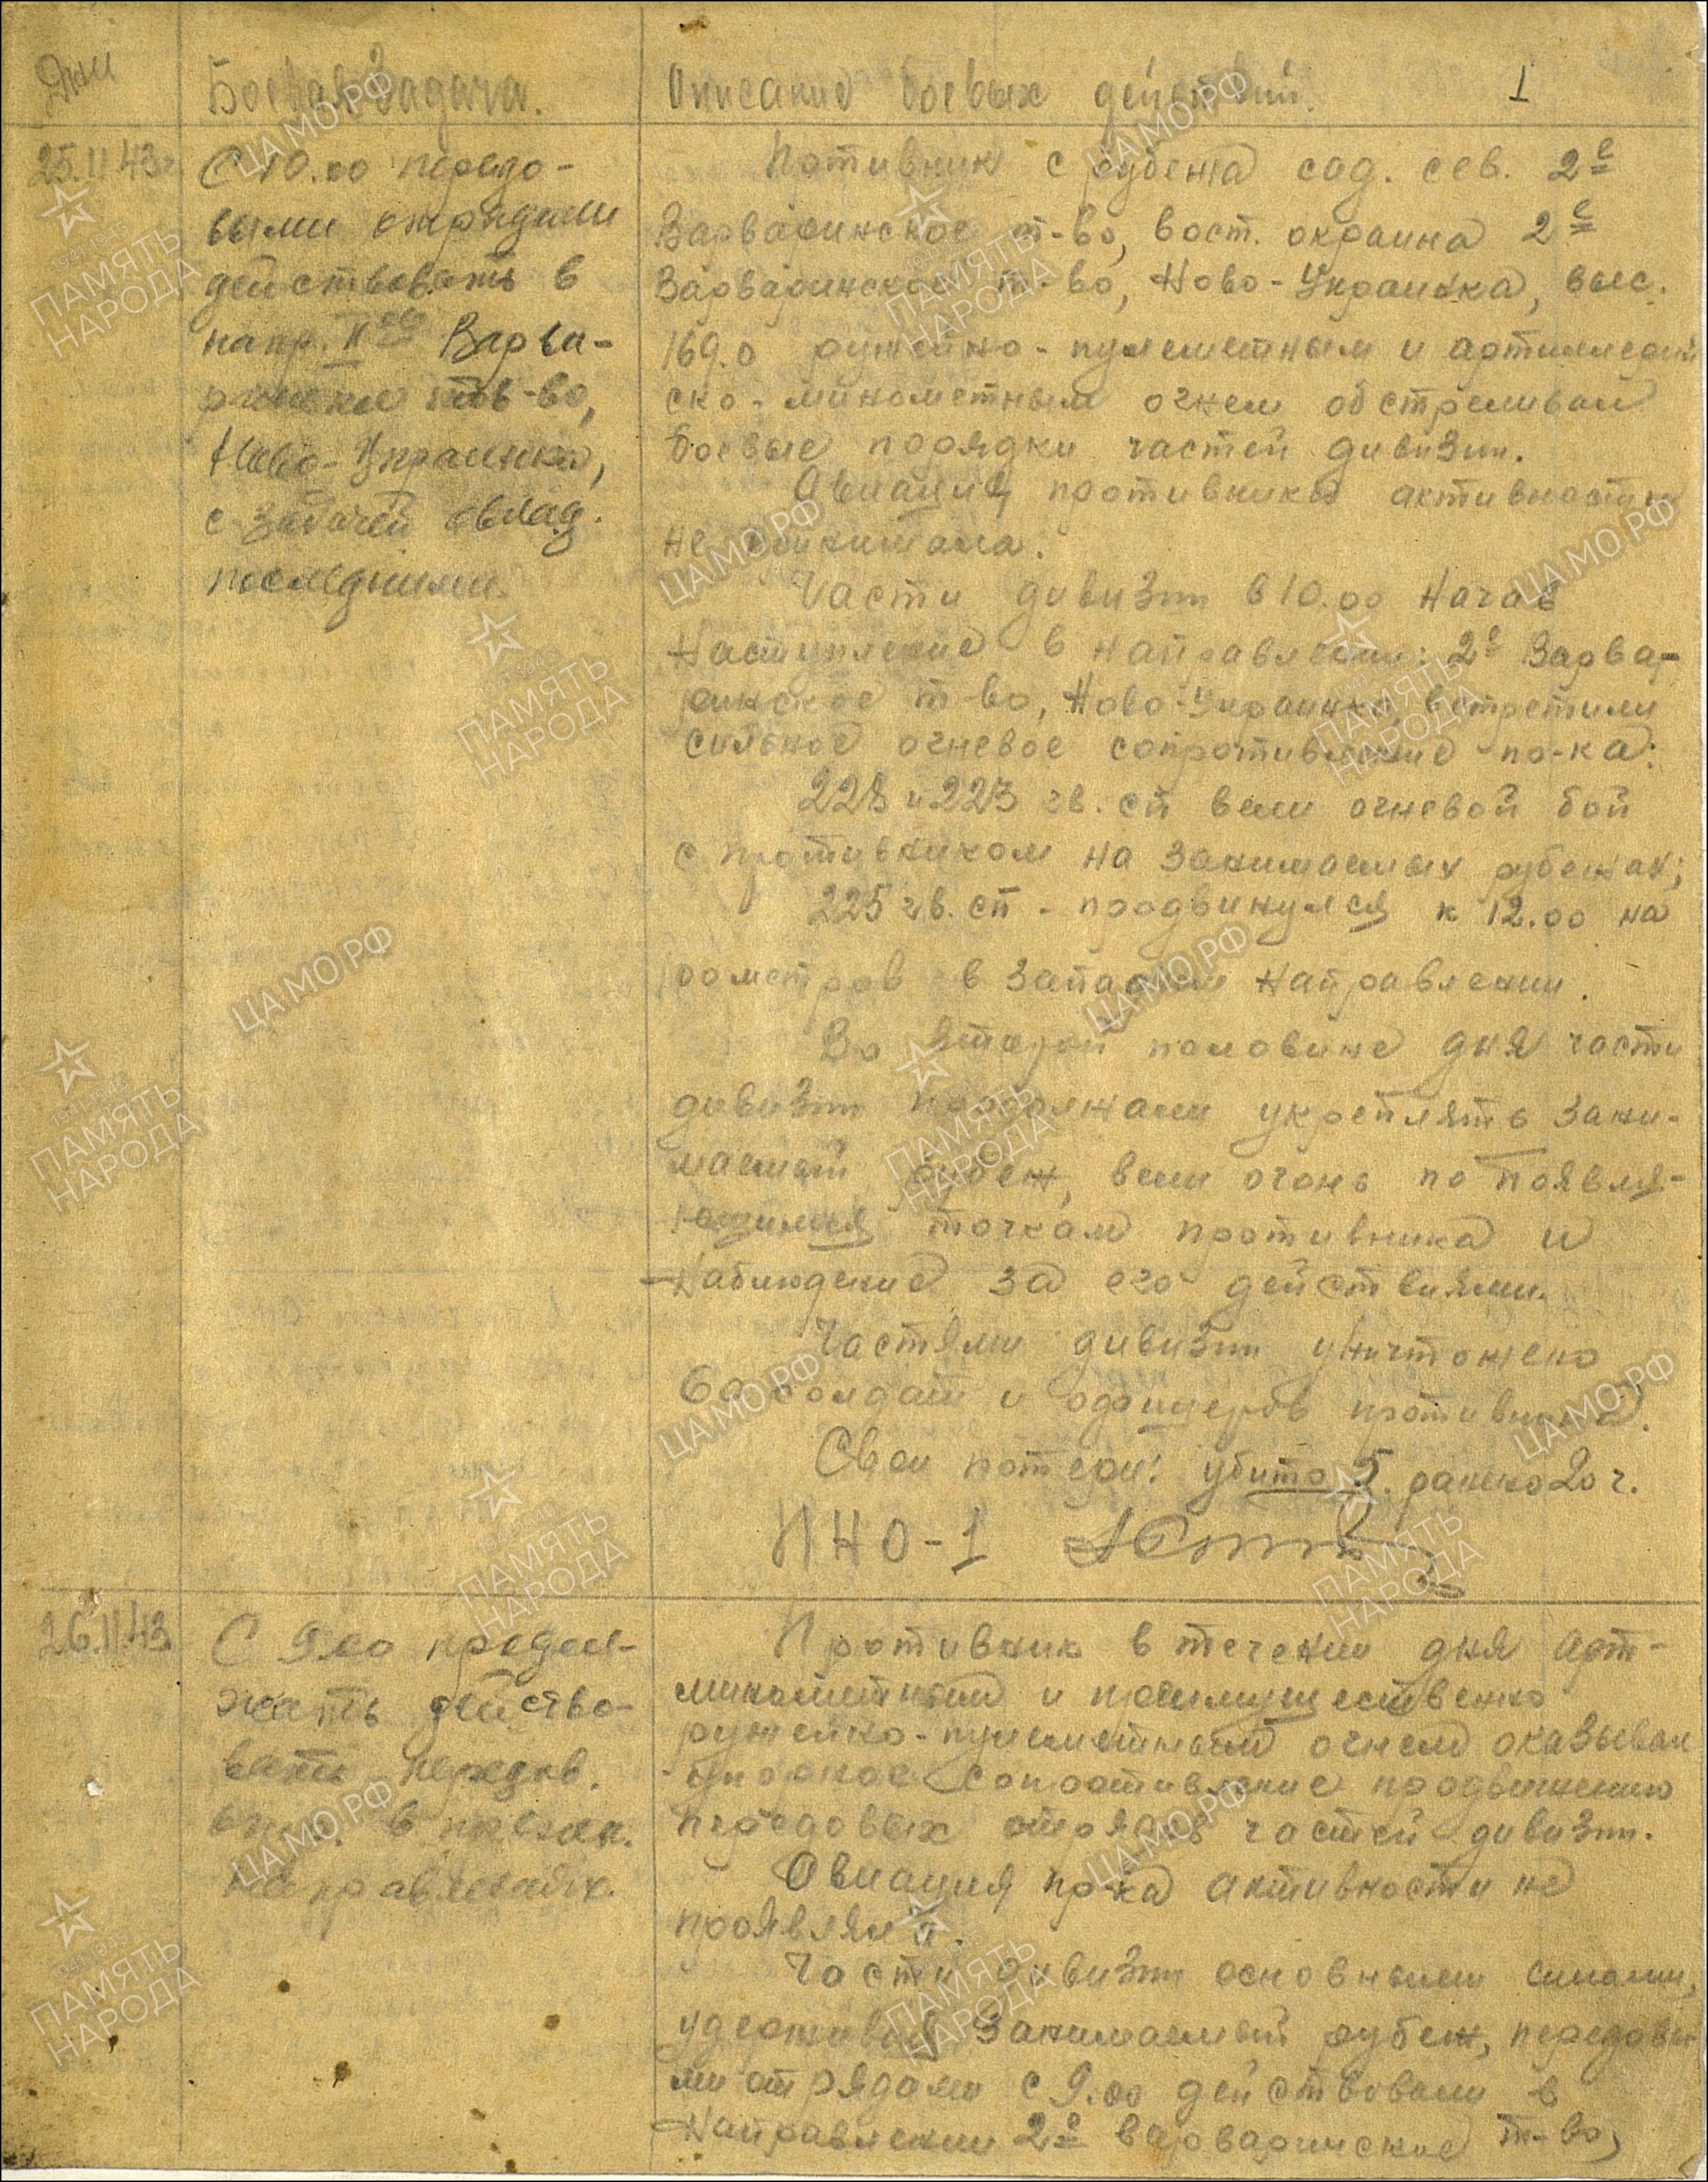 Дни
Боевая Задача.
Описание боевых действий.
1
25.11.43г
С 10.00 передо-
выми отрядами
действовать в
напр. II ое Варва-
ринское тов-во,
Ново-Украинка,
с задачей овлад.
последними.
Потивник с рубежа сад. сев. 2е
Варваринское т-во, вост. окраина 2е
Варваринское т-во, Ново-Украинка, выс.
169.0 ружейно-пулеметным и артиллерий
ско-минометным огнем обстреливал
боевые порядки частей дивизии.
Авиация противника активности
не
Части дивизии в 10.00 начав
наступление в направлении: 2е Варва-
ринское т-во, Ново-Украинка, встретили
сильное огневое сопротивление по-ка:
228 и 223 гв. сп вели огневой бой
с противником на занимаемых рубежах;
225 гв. сп - продвинулся к 12.00 на
100 метров в западном направлении.
Во второй половине дня части
дивизии продолжали укреплять зани-
маемый рубеж, вели огонь по появля-
ющимся точкам противника и
наблюдение за его действиями.
Частями дивизии уничтожено
60 солдат и офицеров противника.
Свои потери: убито 5. ранено 20 ч.
ПНО-1
26.11.43
С 9.00 продол-
жать действо-
вать передов.
отр. в прежн.
направлениях.
Противник в течении дня арт-
минометным и преимущественно
ружейно-пулеметным огнем оказывал
упорное сопротивление продвижению
передовых отрядов частей дивизии.
Авиация пр-ка активности не
проявляла.
Части дивизии основными силами,
удерживая занимаемый рубеж, передовы-
ми отрядами с 9.00 действовали в
направлении 2е Варваринское т-во,
ЦАМО.РФ
1941-1945
ПАМЯТЬ
НАРОДА